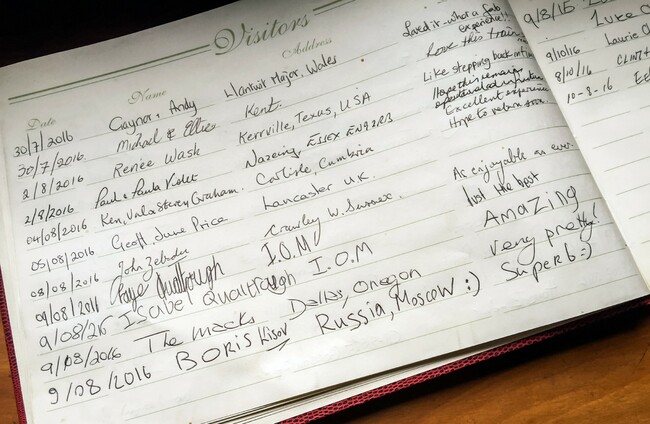 Visitors
Date Name Address
30/7/2016 Gaynor & Andy Llantwit Major, Wales Loved it - what a fab experience!!
30/7/2016 Michael & Ellie Kent. Love this train
2/8/2016 Renée Wask Kerrville, Texas, USA Like stepping back in time
2/8/2016 Paul & Paula Violet Nazeing, Essex EN9 2RB Hope this remain
04/08/2016 Ken, Val & Stacey Graham. Carlisle, Cumbria Excellent experience Hope to return soon.
05/08/2016 Geoff, June Price Lancaster UK.
08/08/2016 John Crawley W. Sussex. As enjoyable as ever.
09/08/2011 Faye Qualtrough I.O.M Just the best
9/08/26 ISabel Qualtrough I.O.M AmaZing
9/08/2016 The Macks Dallas, Oregon very pretty!
9/08/2016 BORIS Kisov Russia, Moscow :) Superb :)
9/8/15
Luke C
9/10/16 Laurie
8/10/16
10-8-16